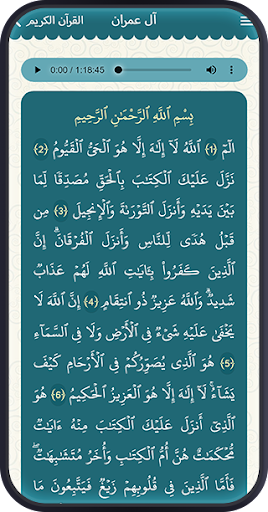 القرآن الكريم
آل عمران
0:00 / 1:18:45
بِسْمِ ٱللَّهِ ٱلرَّحْمَٰنِ ٱلرَّحِيمِ
الٓمٓ (1) ٱللَّهُ لَآ إِلَٰهَ إِلَّا هُوَ ٱلْحَىُّ ٱلْقَيُّومُ (2)
نَزَّلَ عَلَيْكَ ٱلْكِتَٰبَ بِٱلْحَقِّ مُصَدِّقًا لِّمَا
بَيْنَ يَدَيْهِ وَأَنزَلَ ٱلتَّوْرَىٰةَ وَٱلْإِنجِيلَ (3) مِن
قَبْلُ هُدًى لِّلنَّاسِ وَأَنزَلَ ٱلْفُرْقَانَ ۗ إِنَّ
ٱلَّذِينَ كَفَرُوا۟ بِـَٔايَٰتِ ٱللَّهِ لَهُمْ عَذَابٌ
شَدِيدٌ ۗ وَٱللَّهُ عَزِيزٌ ذُو ٱنتِقَامٍ (4) إِنَّ ٱللَّهَ لَا
يَخْفَىٰ عَلَيْهِ شَىْءٌ فِى ٱلْأَرْضِ وَلَا فِى ٱلسَّمَآءِ
(5) هُوَ ٱلَّذِى يُصَوِّرُكُمْ فِى ٱلْأَرْحَامِ كَيْفَ
يَشَآءُ ۚ لَآ إِلَٰهَ إِلَّا هُوَ ٱلْعَزِيزُ ٱلْحَكِيمُ (6) هُوَ
ٱلَّذِىٓ أَنزَلَ عَلَيْكَ ٱلْكِتَٰبَ مِنْهُ ءَايَٰتٌ
مُّحْكَمَٰتٌ هُنَّ أُمُّ ٱلْكِتَٰبِ وَأُخَرُ مُتَشَٰبِهَٰتٌ ۖ
فَأَمَّا ٱلَّذِينَ فِى قُلُوبِهِمْ زَيْغٌ فَيَتَّبِعُونَ مَا